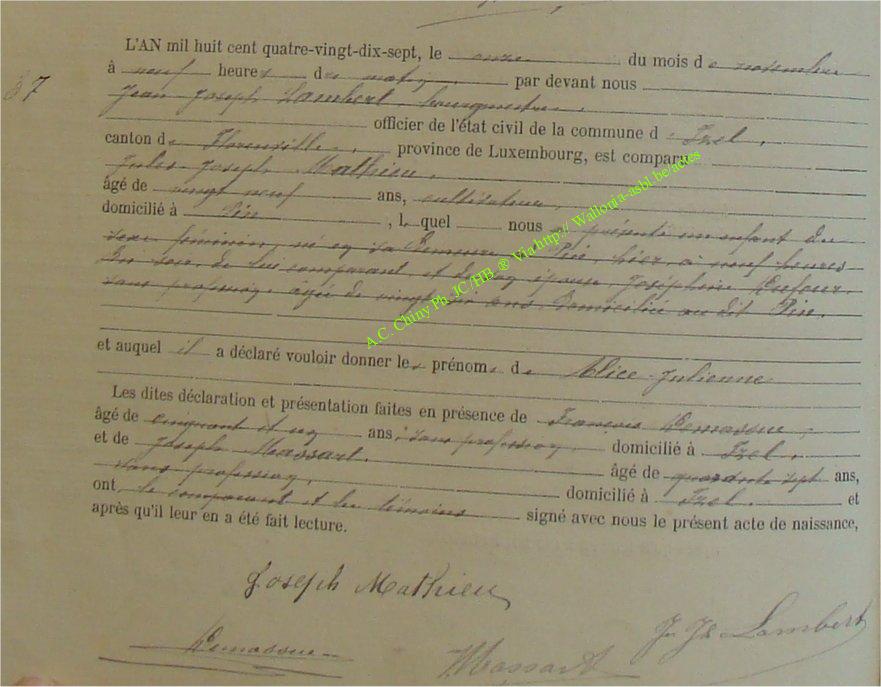 L'AN mil huit cent quatre-vingt-dix-sept, le onze du mois de novembre
87
à neuf heures du matin par devant nous
Jean Joseph Lambert, bourgmestre,
officier de l'état civil de la commune d'Izel,
canton de Florenville, province de Luxembourg, est comparu
Jules Joseph Mathieu,
âgé de vingt neuf ans, cultivateur,
domicilié à Pin, lequel nous a présenté un enfant du
sexe féminin, né en sa demeure à Pin, hier à neuf heures
du soir, de lui comparant et de son épouse, Joséphine Dufour,
sans profession, âgée de vingt six ans, domiciliée au dit Pin.
A.C. Chiny Ph. JC/HB ® Via http://Wallonia-asbl.be/actes
et auquel il a déclaré vouloir donner les prénoms de Alice Julienne
Les dites déclaration et présentation faites en présence de François Demassue,
âgé de cinquant et un ans, sans profession, domicilié à Izel,
et de Joseph Massart, âgé de quarante sept ans,
sans profession, domicilié à Izel. et
ont, le comparant et les témoins signé avec nous le présent acte de naissance,
après qu'il leur en a été fait lecture.
Joseph Mathieu
Demassue Massart J. Js Lambert